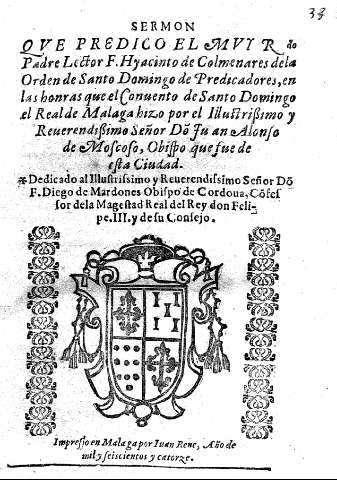 33
SERMON
QVE PREDICO EL MVY R.do
Padre Lector F. Hyacinto de Colmenares de la
Orden de Santo Domingo de Predicadores, en
las honras que el Conuento de Santo Domingo
el Real de Malaga hizo por el Illustrißimo y
Reuerendißimo Señor Dõ Juan Alonso
de Moscoso, Obispo que fue de
esta Ciudad.
Dedicado al Illustrissimo y Reuerendissimo Señor Dõ
F. Diego de Mardones Obispo de Cordoua, Cõfes
sor de la Magestad Real del Rey don Feli-
pe. III. y de su Consejo.
Impresso en Malaga por Iuan Rene, Año de
mil y seiscientos y catorze.